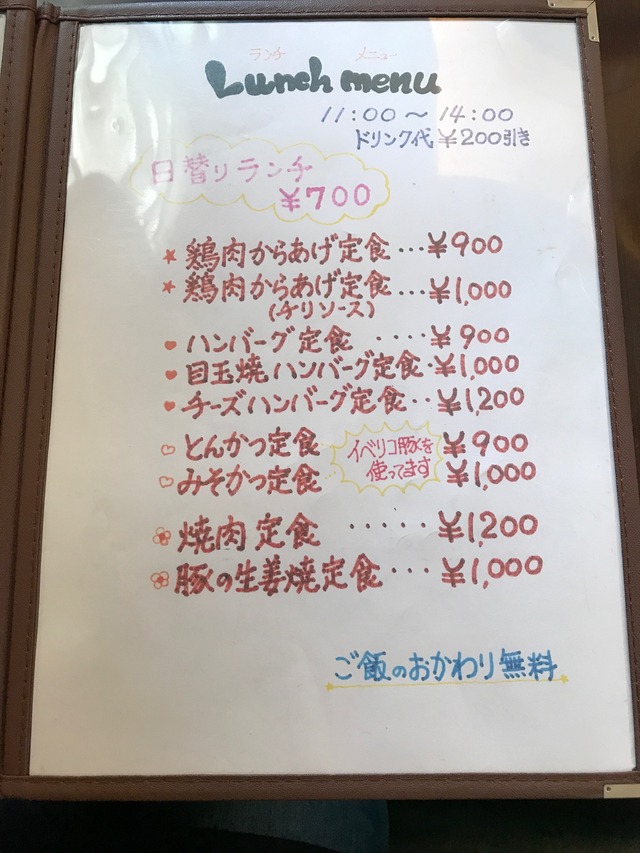 ランチ メニュー
Lunch menu
11:00〜14:00
ドリンク代 ¥200引き
日替りランチ
¥700
★ 鶏肉からあげ定食…¥900
★ 鶏肉からあげ定食…¥1,000
(チリソース)
♥ ハンバーグ定食 ‥‥¥900
♥ 目玉焼ハンバーグ定食・¥1,000
♥ チーズハンバーグ定食‥¥1,200
♡ とんかつ定食 ¥900
♡ みそかつ定食… ¥1,000
イベリコ豚を
使ってます
焼肉定食 ‥‥‥¥1,200
豚の生姜焼定食…¥1,000
ご飯のおかわり無料